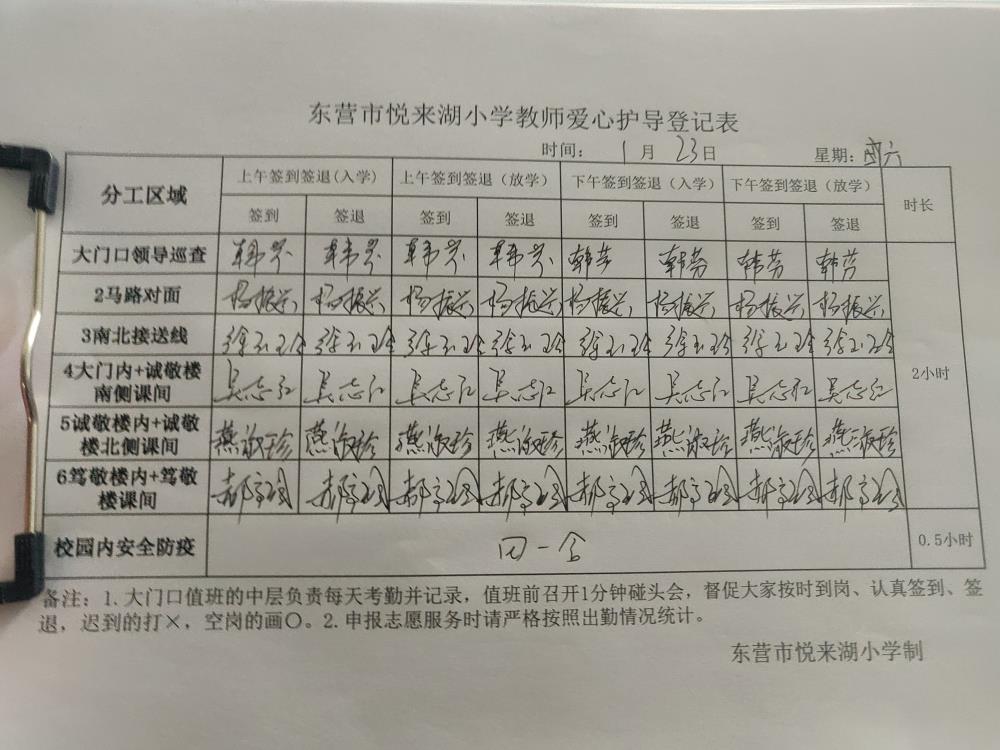 东营市悦来湖小学教师爱心护导登记表
时间: 1月23日 星期: 六
分工区域 上午签到签退(入学) 上午签到签退（放学） 下午签到签退（入学） 下午签到签退（放学） 时长
签到 签退 签到 签退 签到 签退 签到 签退
大门口领导巡查 韩芳 韩芳 韩芳 韩芳 韩芳 韩芳 韩芳 韩芳
2马路对面 杨振兴 杨振兴 杨振兴 杨振兴 杨振兴 杨振兴 杨振兴 杨振兴
3南北接送线 徐玉玲 徐玉玲 徐玉玲 徐玉玲 徐玉玲 徐玉玲 徐玉玲 徐玉玲
4大门内+诚敬楼
南侧课间 吴志红 吴志红 吴志红 吴志红 吴志红 吴志红 吴志红 吴志红
2小时
5诚敬楼内+诚敬
楼北侧课间 燕淑珍 燕淑珍 燕淑珍 燕淑珍 燕淑珍 燕淑珍 燕淑珍 燕淑珍
6笃敬楼内+笃敬
楼课间
校园内安全防疫 0.5小时
备注: 1.大门口值班的中层负责每天考勤并记录，值班前召开1分钟碰头会，督促大家按时到岗、认真签到、签
退，迟到的打×，空岗的画〇。2.申报志愿服务时请严格按照出勤情况统计。
东营市悦来湖小学制